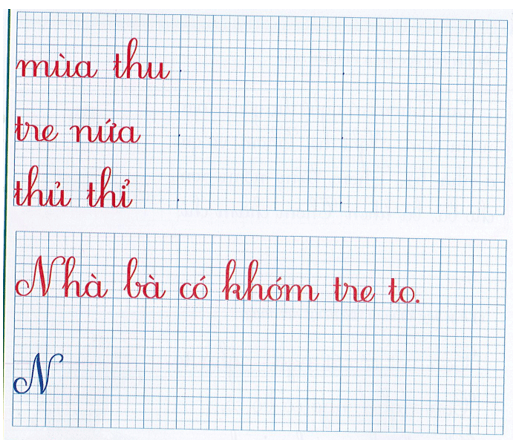 mùa thu
tre nứa
thủ thỉ
Nhà bà có khóm tre to.
N